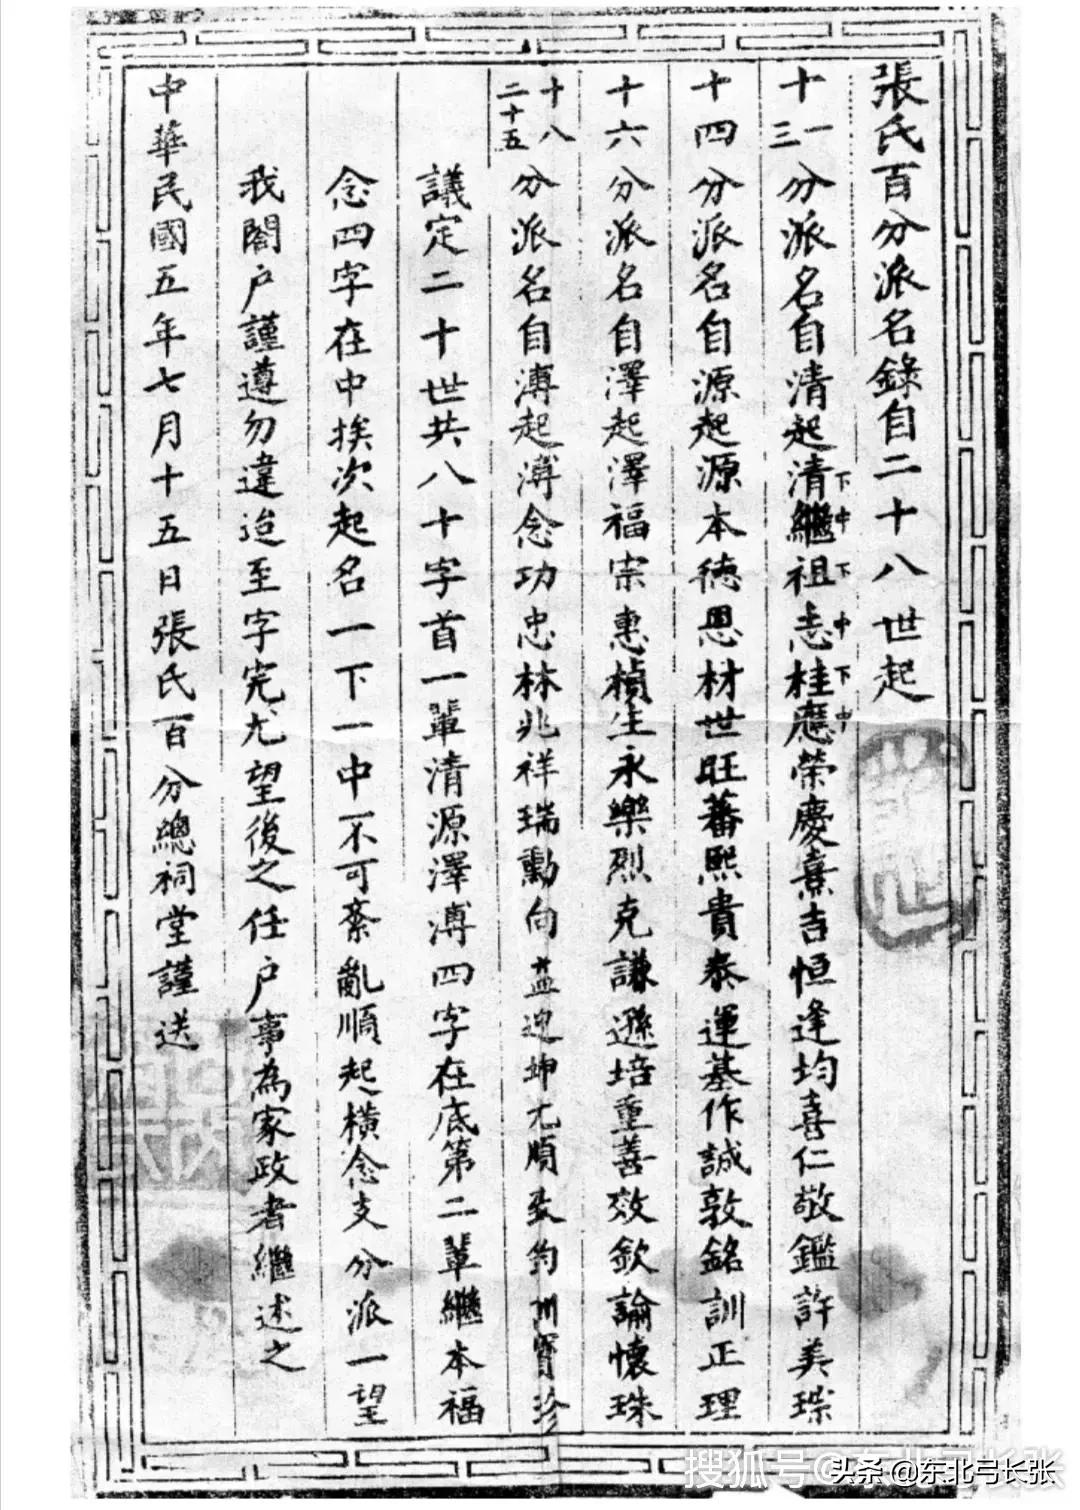 張氏百分派名錄自二十八世起
十一三分派名自清起清繼祖志桂應榮慶熹吉恒逢均喜仁敬鑑許美琮
下中下中下中
十四分派名自源起源本德恩材世旺蕃熙貴泰運基作誠敦銘訓正理
十六分派名自澤起澤福宗惠楨生永樂烈克謙遜培重善效欽論懷珠
十八二十五分派名自溥起溥念功忠林兆祥瑞勳向益迎坤允順致鈞寶珍
議定二十世共八十字首一輩清源澤溥四字在底第二輩繼本福
念四字在中挨次起名一下一中不可紊亂順起橫念支分派一望
我閤戶謹遵勿違迨至字完尤望後之任戶事為家政者繼述之
中華民國五年七月十五日張氏百分總祠堂謹送
搜狐号@东北弓长张
头条 @东北弓长张